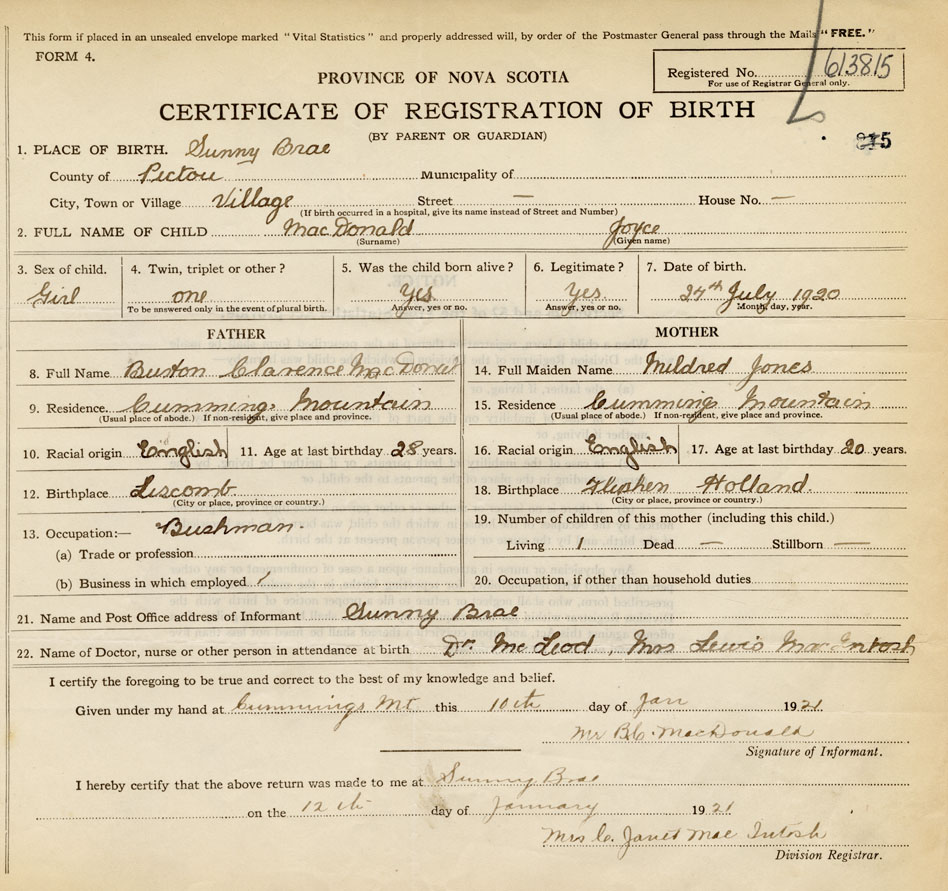 This form if placed in an unsealed envelope marked "Vital Statistics" and properly addressed will, by order of the Postmaster General pass through the Mails "FREE."
FORM 4.
Registered No. 613815
For use of Registrar General only.
PROVINCE OF NOVA SCOTIA
CERTIFICATE OF REGISTRATION OF BIRTH
(BY PARENT OR GUARDIAN)
1. PLACE OF BIRTH. Sunny Brae
County of Pictou Municipality of
City, Town or Village Village Street — House No. —
(If birth occurred in a hospital, give its name instead of Street and Number)
2. FULL NAME OF CHILD MacDonald Joyce
(Surname) (Given name)
3. Sex of child. 4. Twin, triplet or other? 5. Was the child born alive? 6. Legitimate? 7. Date of birth.
Girl one Yes Yes. 27th July 1920
To be answered only in the event of plural birth. Answer, yes or no. Answer, yes or no. Month, day, year.
FATHER MOTHER
8. Full Name Burton Clarence MacDonald 14. Full Maiden Name Mildred Jones
9. Residence. Cummings Mountain 15. Residence Cummings Mountain
(Usual place of abode.) If non-resident, give place and province. (Usual place of abode.) If non-resident, give place and province.
10. Racial origin English 11. Age at last birthday 28 years. 16. Racial origin English 17. Age at last birthday 20 years.
12. Birthplace Liscomb 18. Birthplace Holland.
(City or place, province or country.) (City or place, province or country.)
13. Occupation:— Bushman. 19. Number of children of this mother (including this child.)
(a) Trade or profession Living 1 Dead — Stillborn —
(b) Business in which employed 20. Occupation, if other than household duties
21. Name and Post Office address of Informant Sunny Brae
22. Name of Doctor, nurse or other person in attendance at birth Dr. McLeod, Mrs Lewis MacIntosh
I certify the foregoing to be true and correct to the best of my knowledge and belief.
Given under my hand at Cummings Mt this 10th day of Jan 1921
Mr B.C. MacDonald
Signature of Informant.
I hereby certify that the above return was made to me at Sunny Brae
on the 12th day of January 1921
Mrs C. Janet MacIntosh
Division Registrar.